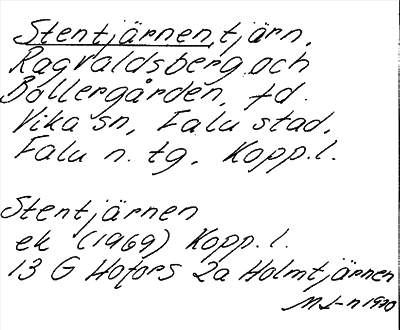 Stentjärnen, tjärn.
Ragvaldsberg och
Bollergården, fd.
Vika sn, Falu stad.
Falu n. tg. Kopp.l.
Stentjärnen
ek (1969) Kopp.l.
13 G Hofors 2a Holmtjärnen
1970